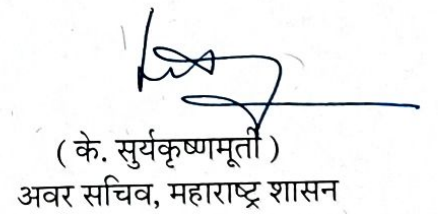 ( के. सुर्यकृष्णमूर्ती )
अवर सचिव, महाराष्ट्र शासन